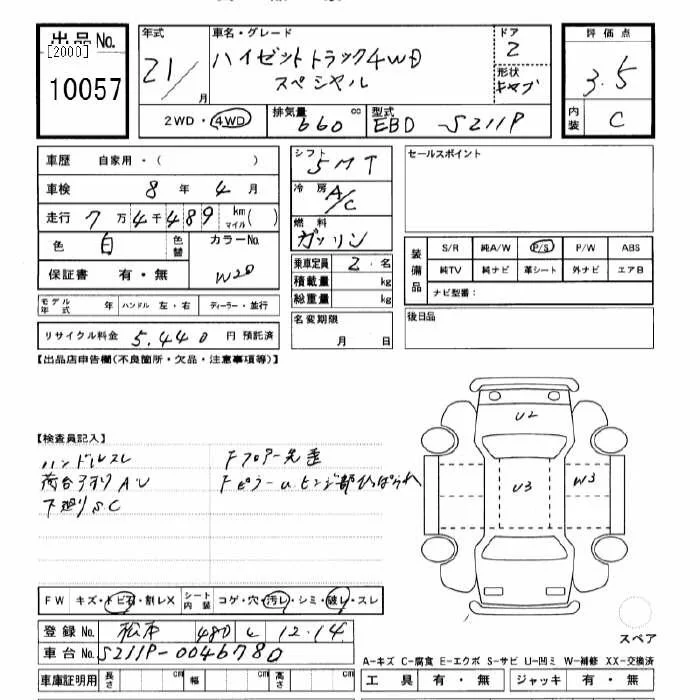 出品No.
[2000]
10057
年式
21/
月
車名・グレード
ハイゼットトラック4WD
スペシャル
ドア
2
形状
キャブ
2WD・4WD
排気量
660
cc
型式
EBD-S211P
評価点
3.5
内装
C
車歴 自家用・( )
車検 8年4月
走行 7万4千489 km マイル( )
色 白 色替
カラーNo.
W20
保証書 有・無
モデル年式 年 ハンドル 左・右 ディーラー・並行
リサイクル料金 5,440 円 預託済
シフト
5MT
冷房
A/C
燃料
ガソリン
乗車定員 2 名
積載量 kg
総重量 kg
名変期限
月 日
セールスポイント
装備品
S/R 純A/W P/S P/W ABS
純TV 純ナビ 革シート 外ナビ エアB
ナビ型番:
後日品
【出品店申告欄(不良箇所・欠品・注意事項等)】
【検査員記入】
ハンドルスレ
荷台アオリA.U
下廻りS.C
Fフロアー
Fピラーu.ヒンジ部ひっぱられ
U2
U3
W3
FW キズ・トビ石・割レX
シート内装 コゲ・穴・汚レ・シミ・破レ・スレ
登録No. 松本 480 い 12-14
車台No. S211P-0046780
車庫証明用 長さ cm 幅 cm 高さ cm
スペア
A-キズ C-腐食 E-エクボ S-サビ U-凹ミ W-補修 XX-交換済
工具 有・無 ジャッキ 有・無